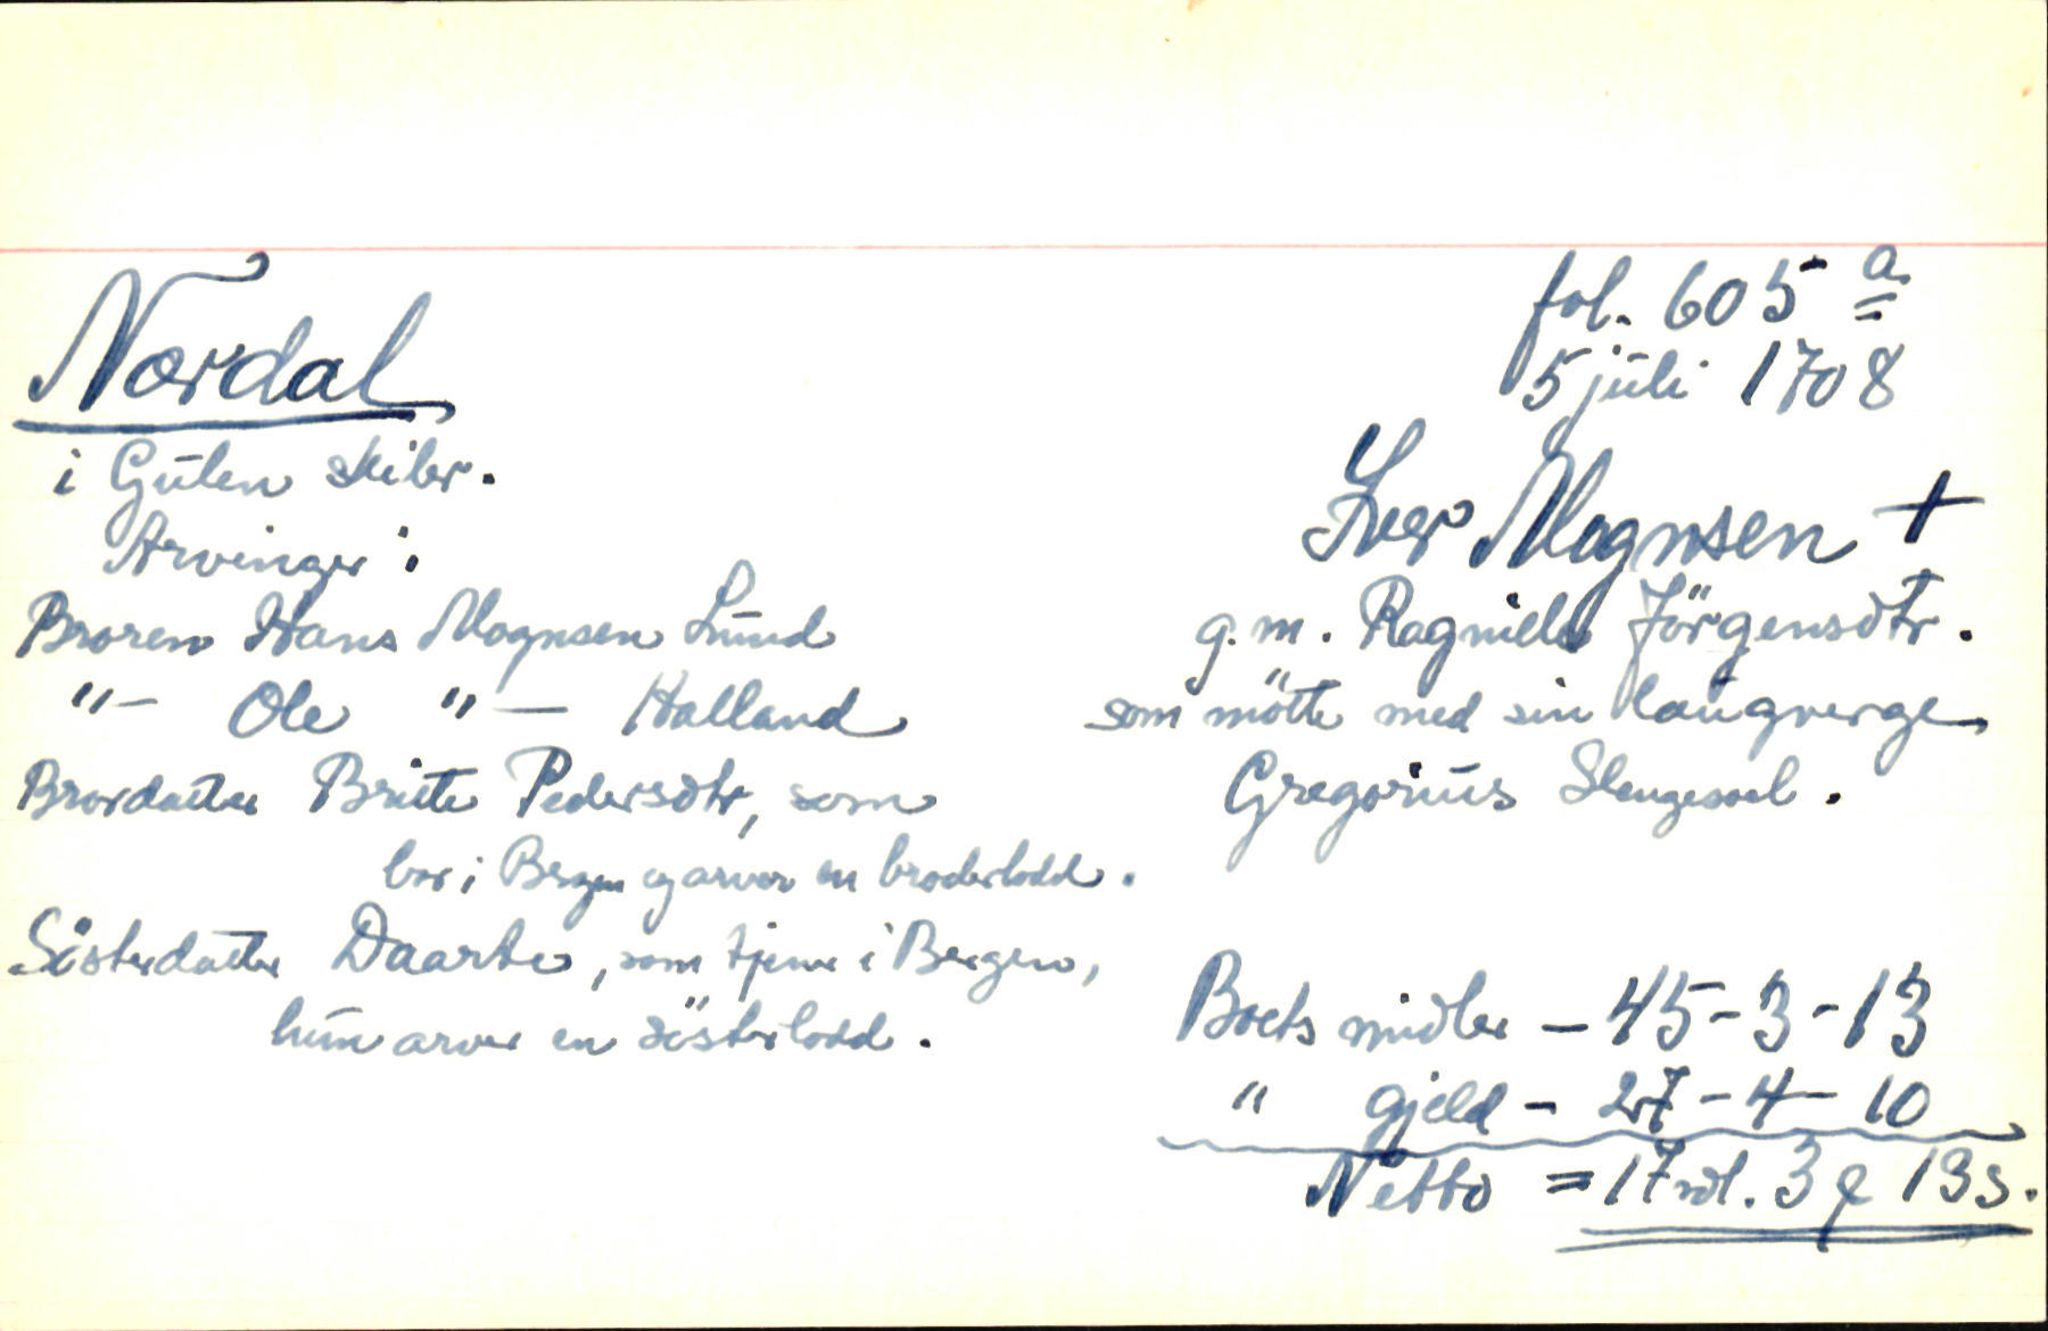 Nordal
i Gūlen skibr.
Arvinger:
Broren Hans Mognsen Lūnd
"— Ole "— Halland
Brordatter Britte Pedersdtr, som
bor i Bergen og arver en broderlodd.
Sösterdatter Daarte, som tjener i Bergen,
hūn arver en sösterlodd.
fol. 605 a
5 jūli 1708
Iver Mognsen +
g.m. Ragnille Jörgensdtr.
som mötte med sin laūgverge
Gregoriūs
Boets midler — 45 - 3 - 13
" gjeld - 27 - 4 - 10
Netto = 17 rdl. 3 ƍ 13 s.